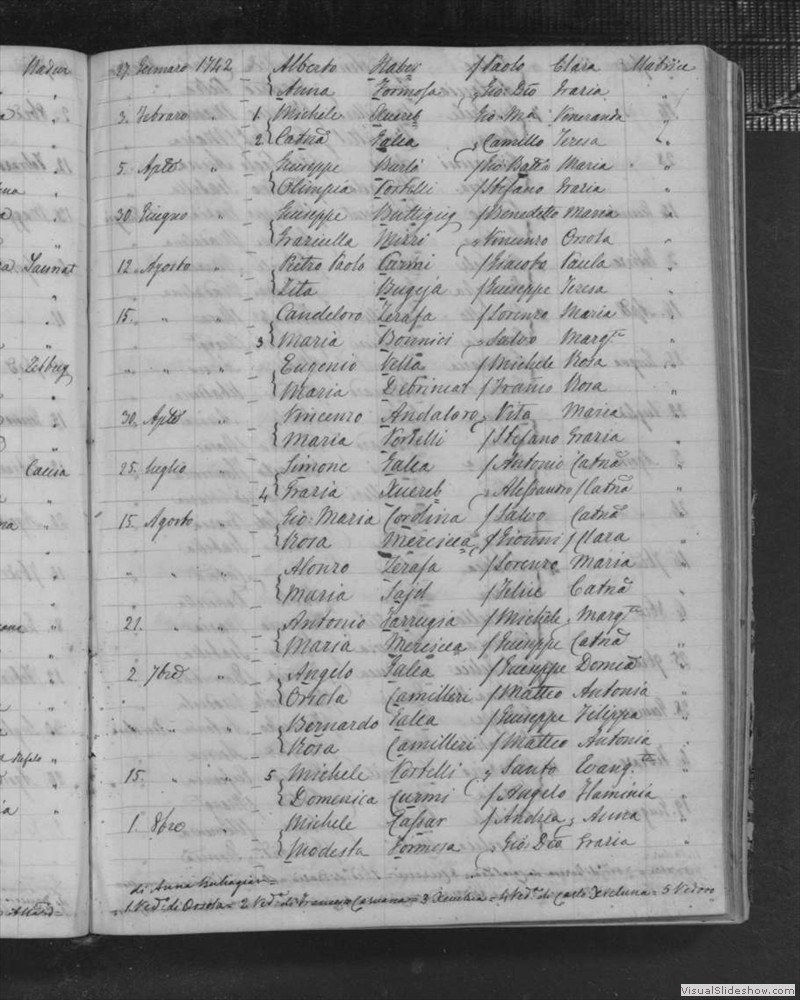 27. Gennaro 1742 { Alberto Haber f Paolo Clara Matrice
Anna Formosa f Gio: Dto Grazia "
3. Febraro " 1. { Michele Xuereb Gio: Ma: Veneranda
2 Catna Galea , Camillo Teresa "
5. Aple " { Giuseppe Burlò f Gio: Batta Maria "
Olimpia Tortelli f Stefano Grazia "
30. Giugno " { Giuseppe Buttigieg f Benedetto Maria "
Graziella Mizzi , Vincenzo Orsola "
12. Agosto " { Pietro Paolo Curmi f Giacobo Paula "
Zita Bugeja f Giuseppe Teresa "
15. " " { Candeloro Zerafa f Lorenzo Maria "
3 Maria Bonnici , Salvo Margta "
" " " { Eugenio Vella f Michele Rosa "
Maria Debrincat f Franco Rosa "
30. Aple " { Vincenzo Andaloro , Vita Maria "
Maria Tortelli f Stefano Grazia "
25. Luglio " { Simone Galea f Antonio Catna "
4 Grazia Xuereb , Alessandro f Catna "
15. Agosto " { Gio: Maria Corolina f Salvo Catna "
Rosa Mercieca f Gioanni f Clara "
" " " { Alonzo Zerafa f Lorenzo Maria "
Maria f Felice Catna "
21. " " { Antonio Farrugia f Michele Margta "
Maria Mercieca f Giuseppe Catna "
2. 7bre " { Angelo Galea f Giuseppe Domca "
Orsola Camilleri f Matteo Antonia "
" { Bernardo Galea f Giuseppe Filippa "
Rosa Camilleri f Matteo Antonia "
15. " " 5 { Michele Tortelli , Santo Evangta "
Domenica Curmi f Angelo Flaminia "
1. 8bre " { Michele Caruar f Andrea , Anna "
Modesta Formosa , Gio: Dto Grazia "
di Anna Buhagiar=
1 Vedo. di Orsola = 2 Veda. di Francesco Caruana = 3 = 4 Veda. di Carlo = 5 Vedovo
Madur
Gaunat
Zebbug
Caccia
VisualSlideshow.com